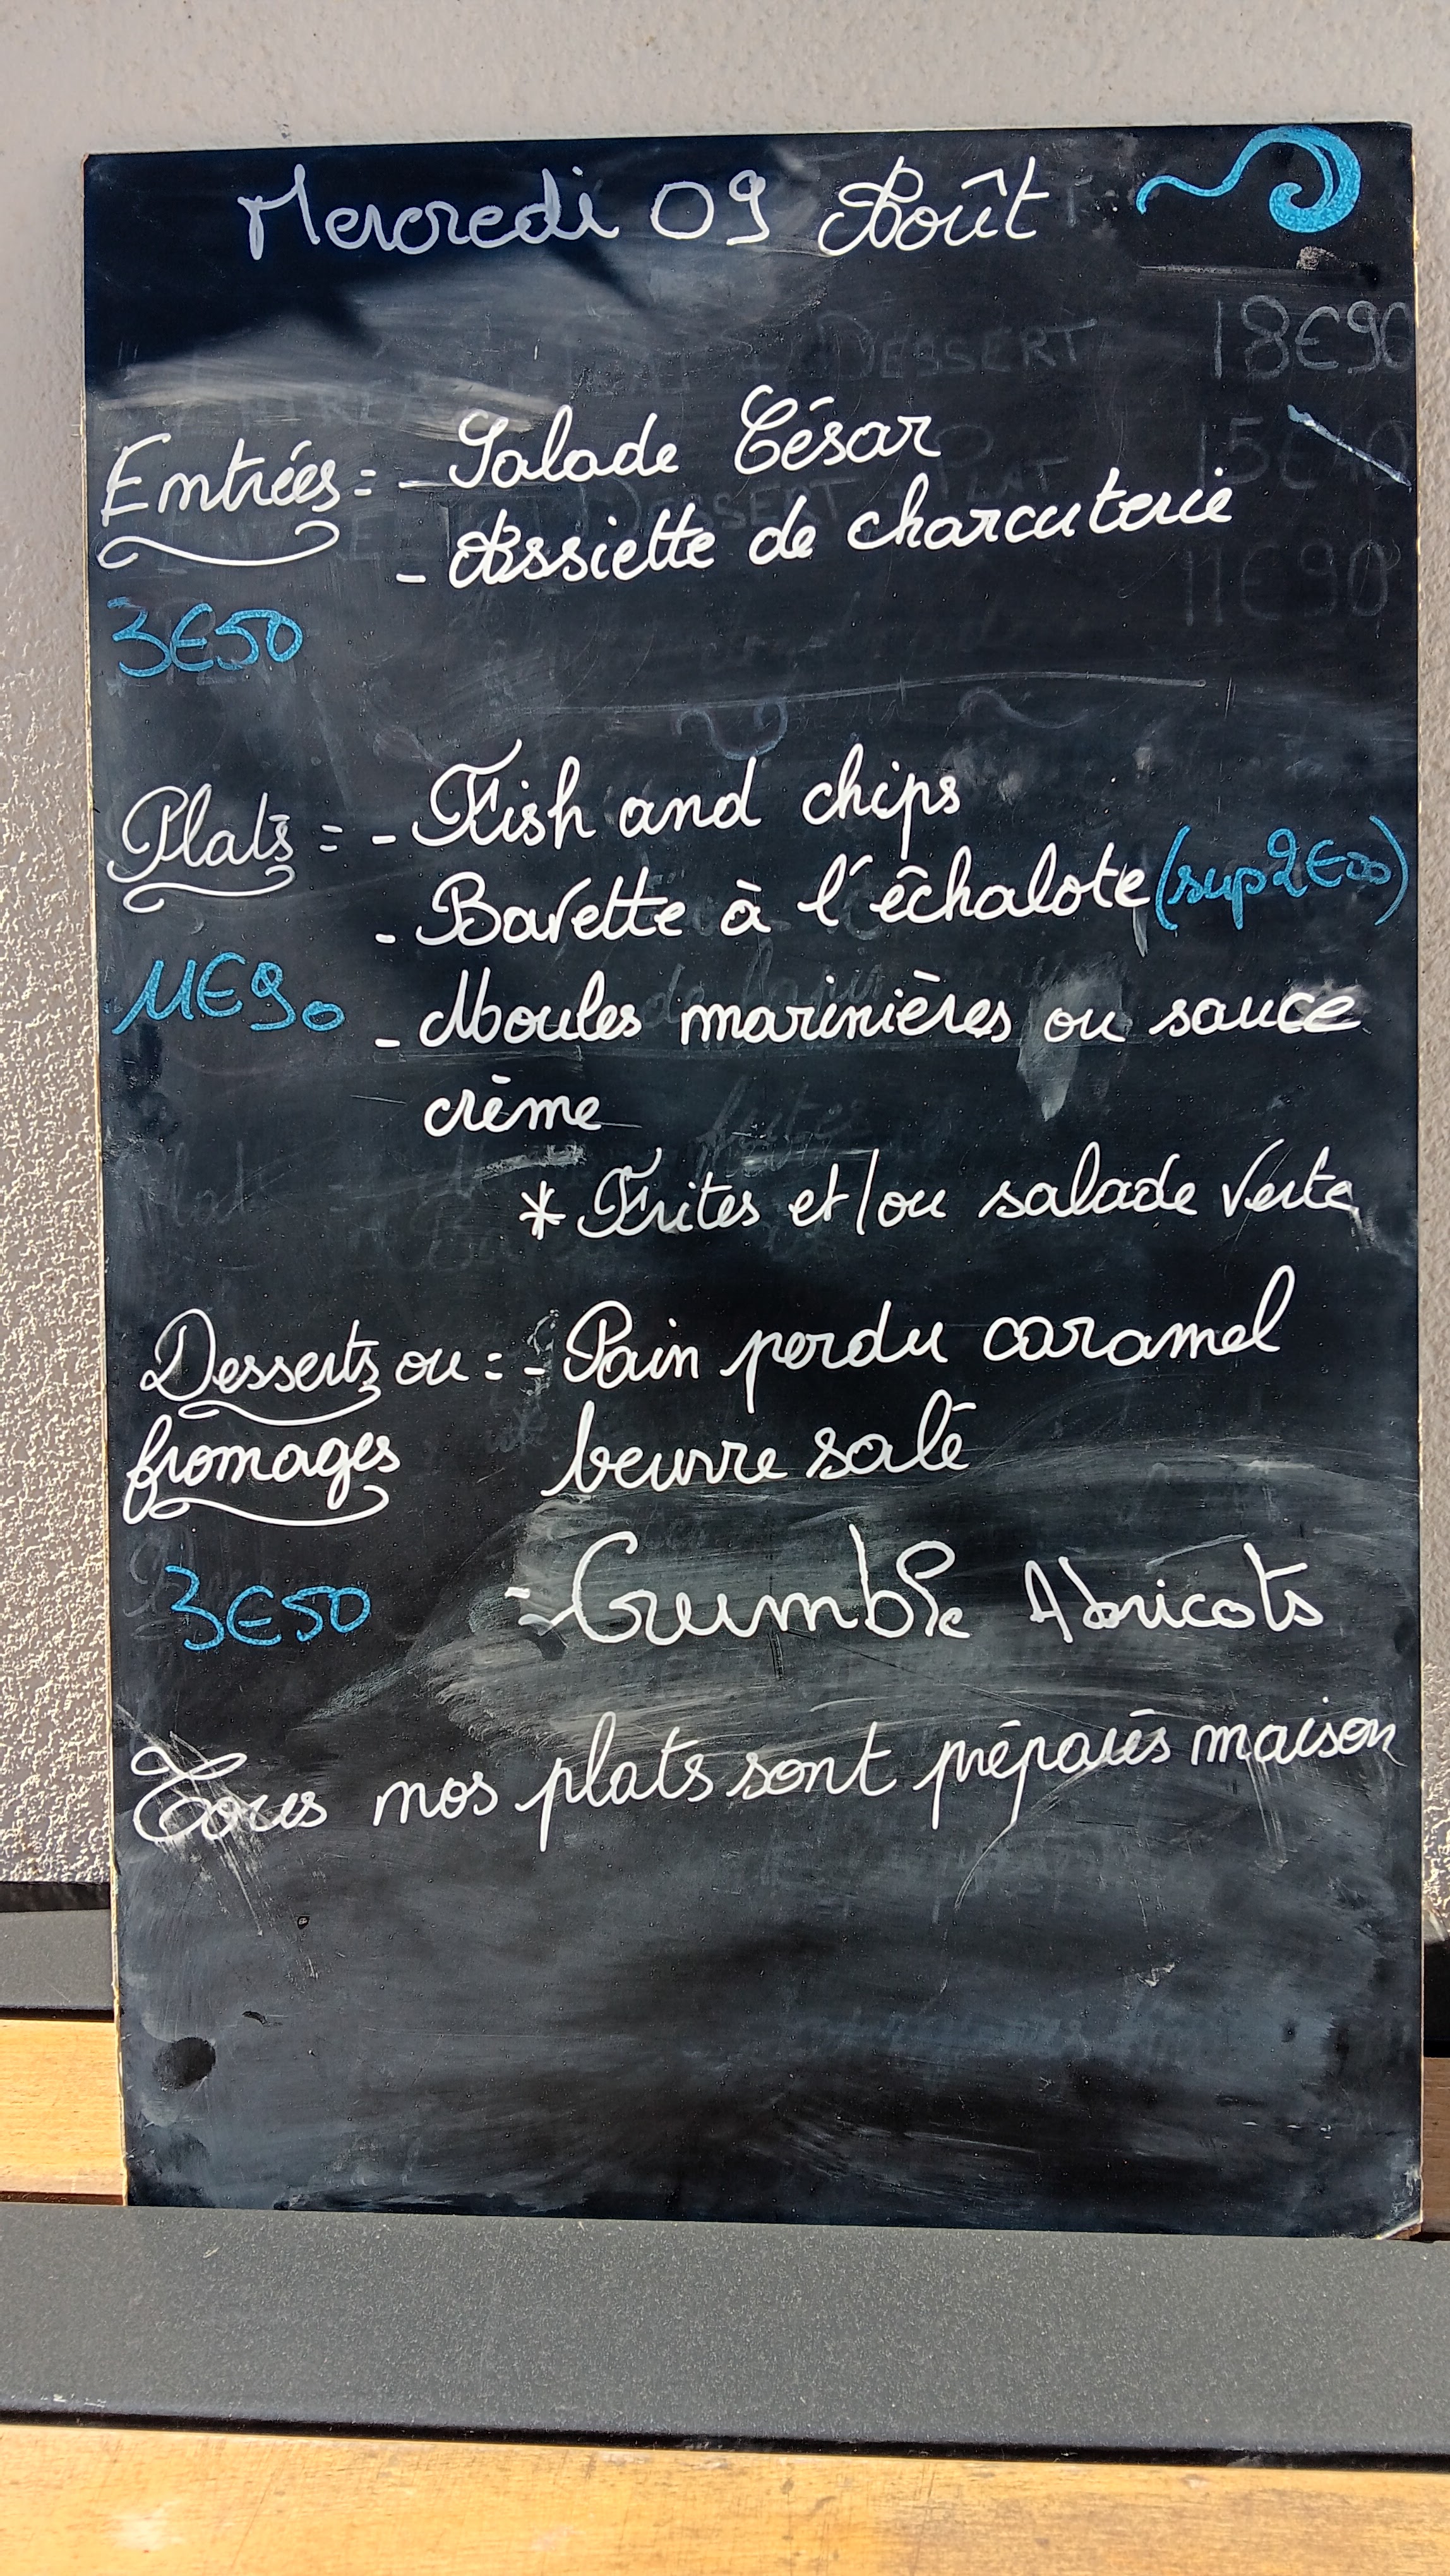 Mercredi 09 Août
DESSERT 18€90
Entrées = - Salade César
- Assiette de charcuterie
11€90
3€50
Plats = - Fish and chips
- Bavette à l'êchalote (sup 2€00)
11€90
- Moules marinières ou sauce
crème
* Frites et/ou salade verte
Desserts ou = - Pain perdu caramel
fromages beurre salé
3€50 - Crumble Abricots
Tous nos plats sont préparés maison